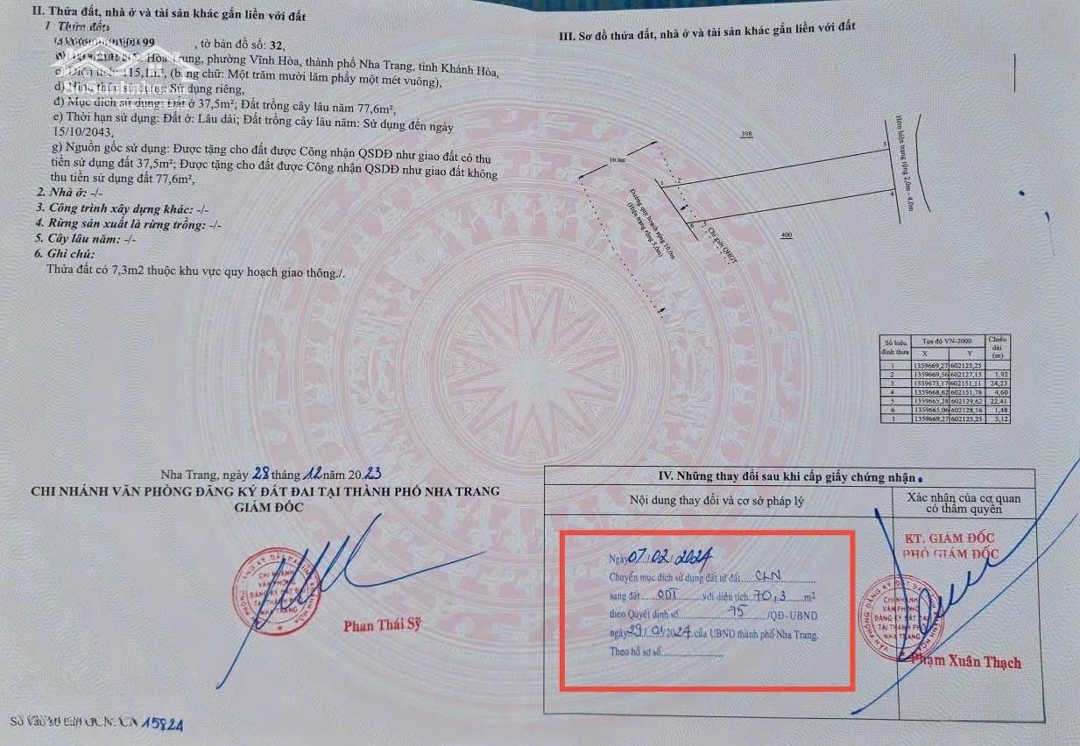 II. Thửa đất, nhà ở và tài sản khác gắn liền với đất
1 Thửa đất
99 , tờ bản đồ số: 32,
Hòa Trung, phường Vĩnh Hòa, thành phố Nha Trang, tỉnh Khánh Hòa,
c) Diện tích: 115,1m², (bằng chữ: Một trăm mười lăm phẩy một mét vuông),
d) Hình thức sử dụng: Sử dụng riêng,
đ) Mục đích sử dụng: Đất ở 37,5m²; Đất trồng cây lâu năm 77,6m²,
e) Thời hạn sử dụng: Đất ở: Lâu dài; Đất trồng cây lâu năm: Sử dụng đến ngày
15/10/2043,
g) Nguồn gốc sử dụng: Được tặng cho đất được Công nhận QSDĐ như giao đất có thu
tiền sử dụng đất 37,5m²; Được tặng cho đất được Công nhận QSDĐ như giao đất không
thu tiền sử dụng đất 77,6m²,
2. Nhà ở: -/-
3. Công trình xây dựng khác: -/-
4. Rừng sản xuất là rừng trồng: -/-
5. Cây lâu năm: -/-
6. Ghi chú:
Thửa đất có 7,3m2 thuộc khu vực quy hoạch giao thông./.
Nha Trang, ngày 28 tháng 12 năm 2023
CHI NHÁNH VĂN PHÒNG ĐĂNG KÝ ĐẤT ĐAI TẠI THÀNH PHỐ NHA TRANG
GIÁM ĐỐC
CHI NHÁNH
VĂN PHÒNG
ĐĂNG KÝ ĐẤT ĐAI
TẠI THÀNH PHỐ
NHA TRANG
Phan Thái Sỹ
15824
III. Sơ đồ thửa đất, nhà ở và tài sản khác gắn liền với đất
398
10.0m
Hẻm hiện trạng rộng 2,0m - 4,0m
Đường quy hoạch rộng 10,0m
(Hiện trạng rộng 5,0m)
Chỉ giới QHGT
400
1
2
3
4
5
6
Số hiệu đỉnh thửa Tọa độ VN-2000 Chiều dài (m)
X Y
1 1359669,27 602125,25
2 1359669,56 602127,15 1,92
3 1359673,17 602151,11 24,23
4 1359668,62 602151,78 4,60
5 1359665,28 602129,62 22,41
6 1359665,06 602128,16 1,48
1 1359669,27 602125,25 5,12
IV. Những thay đổi sau khi cấp giấy chứng nhận
Nội dung thay đổi và cơ sở pháp lý
Xác nhận của cơ quan
có thẩm quyền
Ngày 07/02/2024
Chuyển mục đích sử dụng đất từ đất CLN
sang đất ODT với diện tích 70,3 m²
theo Quyết định số 75 /QĐ-UBND
ngày 29/01/2024 của UBND thành phố Nha Trang.
Theo hồ sơ số
KT. GIÁM ĐỐC
PHÓ GIÁM ĐỐC
CHI NHÁNH
VĂN PHÒNG
ĐĂNG KÝ ĐẤT ĐAI
TẠI THÀNH PHỐ
NHA TRANG
Phạm Xuân Thạch